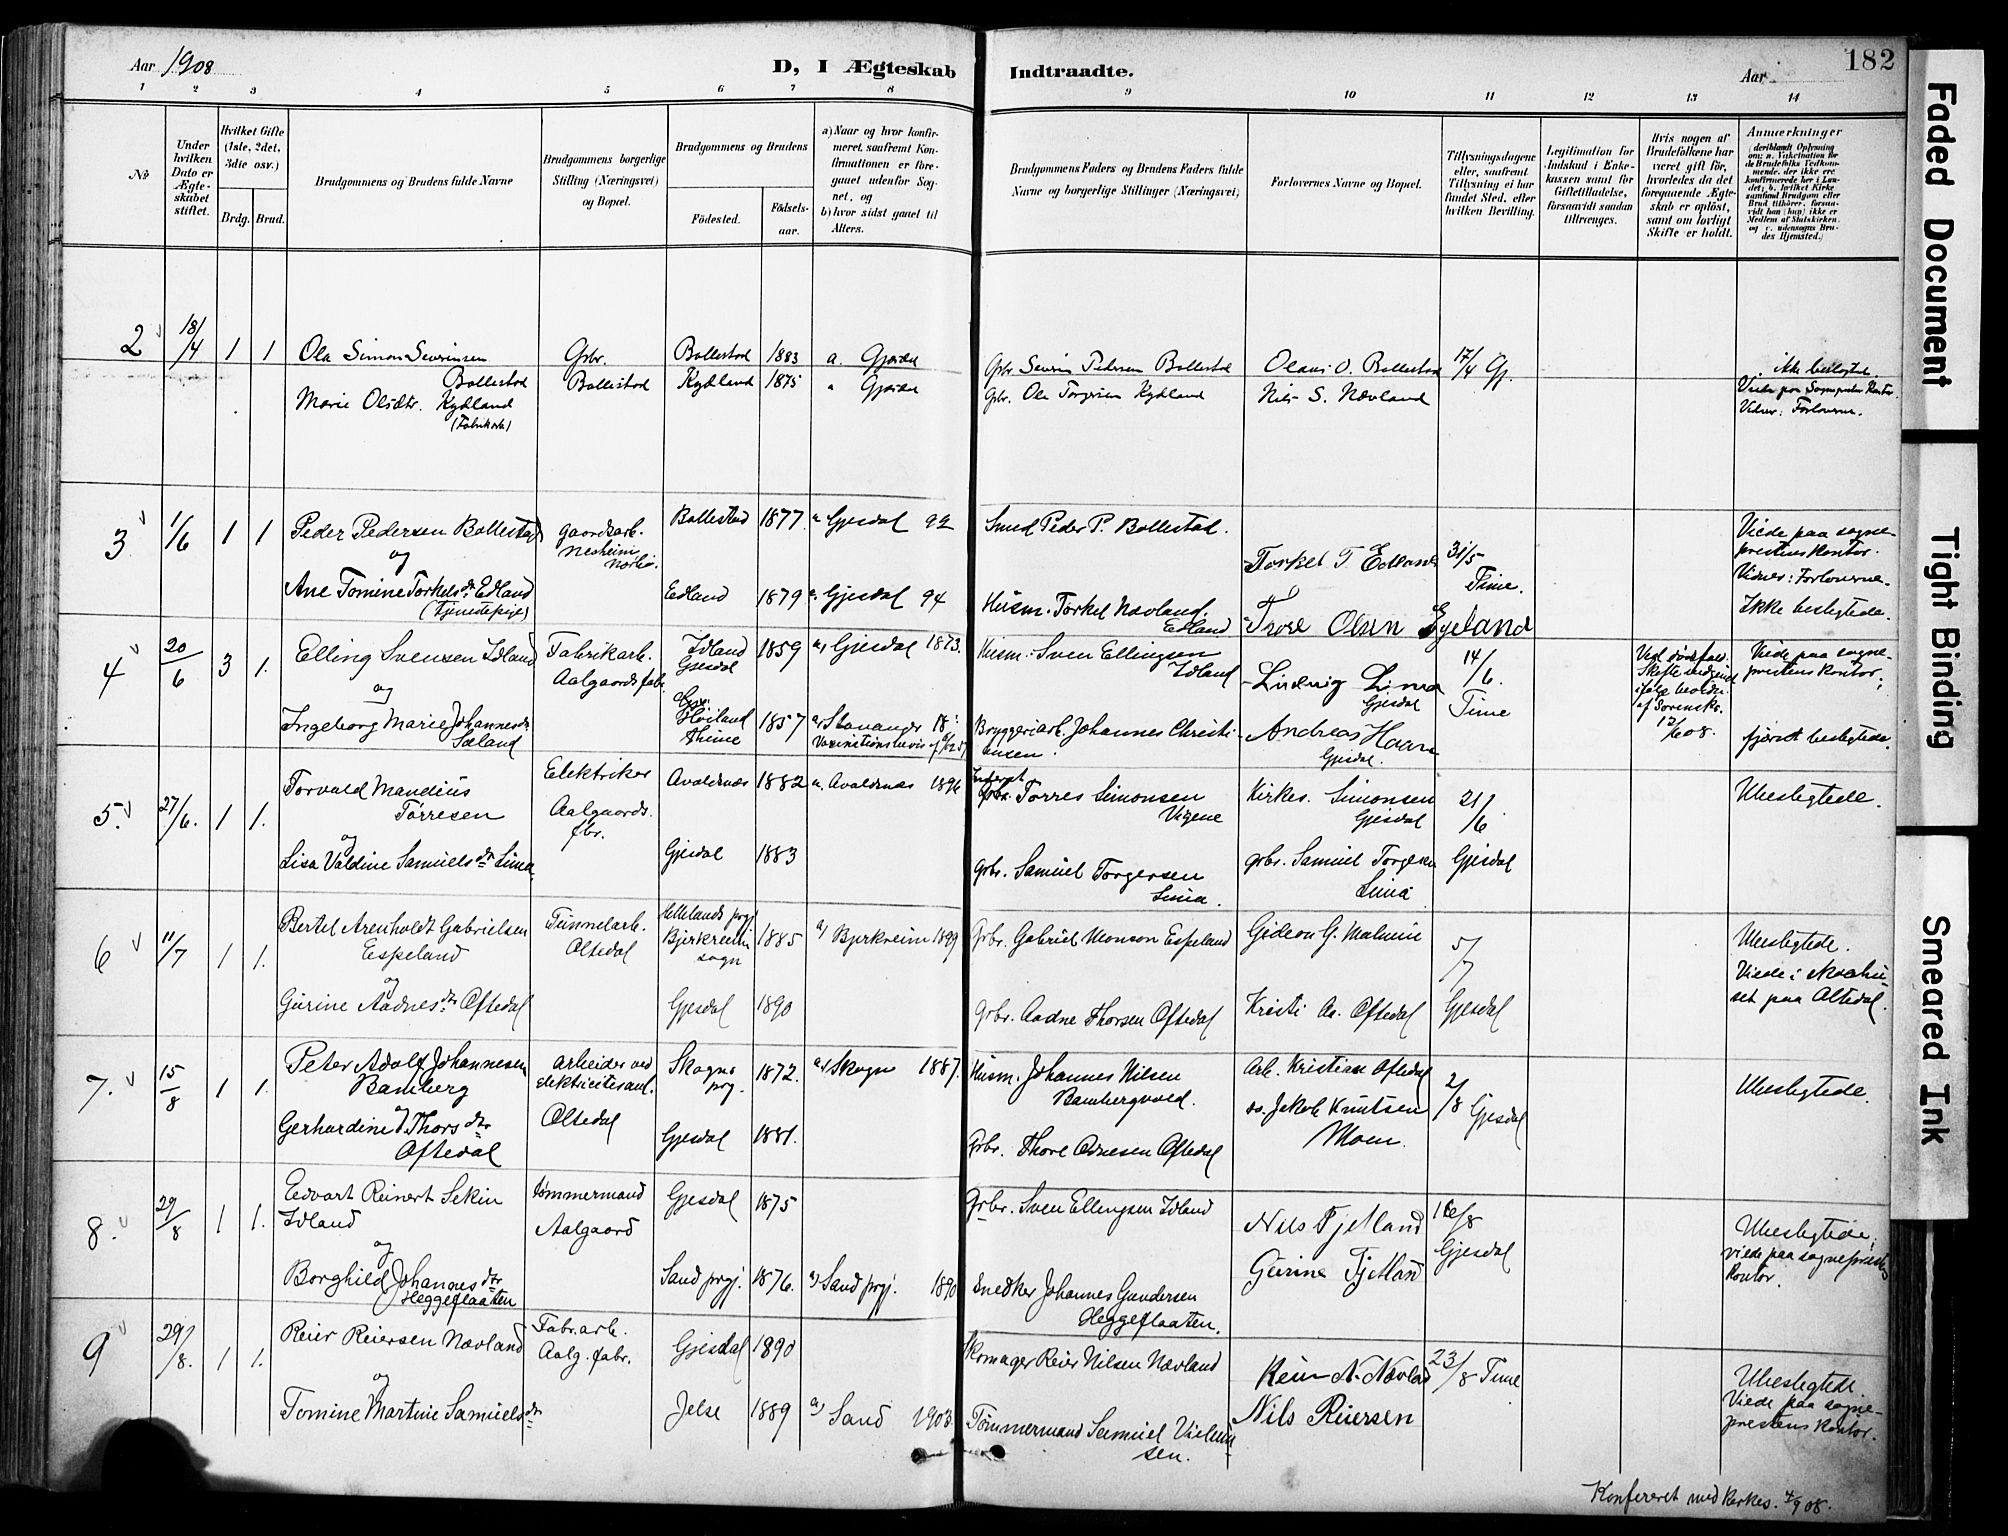 Aar 1908
D, I Ægteskab Indtraadte.
Aar
182
1 2 3 4 5 6 7 8 9 10 11 12 13 14
No
Under hvilken Dato er Ægteskabet stiftet.
Hvilket Gifte (1ste, 2det, 3die osv.)
Brdg. Brud.
Brudgommens og Brudens fulde Navne
Brudgommens borgerlige Stilling (Næringsvei) og Bopæl.
Brudgommens og Brudens
Fødested.
Fødselsaar.
a) Naar og hvor konfirmeret, saafremt Konfirmationen er foregaaet udenfor Sognet, og
b) hvor sidst gaaet til Alters.
Brudgommens Faders og Brudens Faders fulde Navne og borgerlige Stillinger (Næringsvei)
Forlovernes Navne og Bopæl.
Tillysningsdagene eller, saafremt Tillysning ei har fundet Sted, efter hvilken Bevilling.
Legitimation for Indskud i Enkekassen samt for Giftetilladelse, forsaavidt saadan tiltrænges.
Hvis nogen af Brudefolkene har været gift før, hvorledes da det foregaaende Ægteskab er opløst, samt om lovligt Skifte er holdt.
Anmærkninger
(deriblandt Oplysning om: a. Vakcination for de Brudefolks Vedkommende, der ikke ere konfirmerede her i Landet; b. hvilket Kirkesamfund Brudgom eller Brud tilhører, forsaavidt han (hun) ikke er Medlem af Statskirken, og c. udensogns Brudes Hjemsted.)
2 18/4 1 1 Ola Simon Severinsen Bollestad Gbr. Bollestad 1883 a. Gjesdal Gbr. Severin Pedersen Bollestad Olavi O. Bollestad 17/4 Gj. ikke beslegtede.
Marie Olsdtr. Kydland (Fabrikarb) Bollestad Kydland 1875 " Gjesdal Gbr. Ola Torgersen Kydland Nils S. Nævland Viede paa Sogneprestens Kontor. Vidner: Forloverne.
3 1/6 1 1 Peder Pedersen Bollestad gaardsarb. Bollestad 1877. a. Gjesdal 92 Smed Peder P. Bollestad. Torkel T. Edland 31/5 Time. Viede paa sogneprestens kontor.
og Nesheim
Ane Tomine Torkelsdtr. Edland (Tjenestepige) Edland 1879 a. Gjesdal 94 Husm. Torkel Nævland Edland Tore Olsen Vidnes: Forloverne. Ikke beslegtede.
4 20/6 3 1. Elling Svensen Idland Fabrikarb. Aalgaards fabr. Idland Gjesdal 1859 a) Gjesdal 1873. Husm. Sven Ellingsen Idland Ludvig Lima Gjesdal 14/6. Time Ved dødsfald. Skifte 12/6 08. Viede paa sogneprestens kontor;
og
Ingeborg Marie Johannesdtr. Sæland Høiland Thime 1857 a) Stavanger Bryggeriarb. Johannes Christiansen. Andreas Haan Gjesdal. fjernt beslegtede.
5. 27/6. 1 1. Torvald Mandius Tørresen Elektriker Aalgaards fbr. Avaldsnæs 1882 a. Avaldsnæs 1896 Gbr. Torres Simonsen Kirkes. Simonsen Gjesdal 21/6 Gjesdal Ubeslegtede.
og
Lisa Valdine Samuelsdtr. Lima Gjesdal 1883 grbr. Samuel Torgersen Lima. grbr. Samuel Torgersen Lima
6 11/7 1 1. Bertel Arenholdt Gabrielsen Espeland Tunnelarb. Oltedal Hellelands prgj. Bjerkreim sogn 1885 a) Bjerkreim 1899 Grbr. Gabriel Monson Espeland Gideon G. Malmin 5/7 Gjesdal Ubeslegtede. Viede i skolehuset paa Oltedal.
og
Gurine Aadnesdtr. Oftedal Gjesdal 1890 Grbr. Aadne Thorsen Oftedal Kristi Aa. Oftedal
7. 15/8 1 1. Peter Adolf Johannesen Bamberg arbeider ved elektricitetsanl. Oltedal Skogns prg. 1872. a) Skogn 1887. Husm. Johannes Nilsen Bambergvold. Arb. Kristian Oftedal 2/8 Gjesdal Ubeslegtede.
og
Gerhardine Thorsdtr. Oftedal Gjesdal 1881. Grbr. Thore Adnesen Oftedal Jakob Knutsen Moen.
8. 29/8 1 1. Edvart Reinert Sekin Idland tømmermand Aalgaard Gjesdal 1875 Grbr. Sven Ellingsen Idland Nils Fjetland 16/8 Gjesdal Ubeslegtede, viede paa sogneprestens kontor.
og
Borghild Johannesdtr. Heggeflaaten Sand prgj. 1876. a) Sand prgj. 1890 Snedker Johannes Gundersen Heggeflaaten. Gurine Fjetland
9 29/8. 1 1. Reier Reiersen Nævland Fabr.arb. Aalg. fabr. Gjesdal 1890 Skomager Reier Nilsen Nævland Reier N. Nævland 23/8 Time Ubeslegtede. Viede paa sogneprestens kontor.
og
Tomine Martine Samuelsdtr. Jelse 1889 a) Sand 1903 Tømmermand Samuel Nils Reiersen
Konfereret med kirkes.
Faded Document
Tight Binding
Smeared Ink